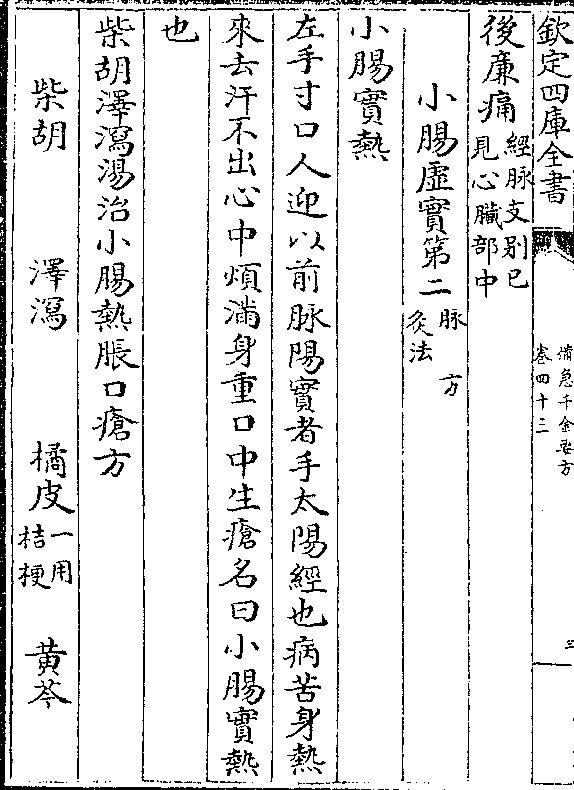 欽定四庫全書
備急千金要方
卷四十三
三
後廉痛經脉支别已見心臟部中
小腸虚實第二脉 方 灸法
小腸實熱
左手寸口人迎以前脉陽實者手太陽經也病苦身熱
來去汗不出心中煩滿身重口中生瘡名曰小腸實熱
也
柴胡澤瀉湯治小腸熱脹口瘡方
柴胡 澤瀉 橘皮一用桔梗 黃芩